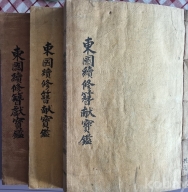 東國續修簪獻寶鑑
東國續修簪獻寶鑑
東國續修簪獻寶鑑